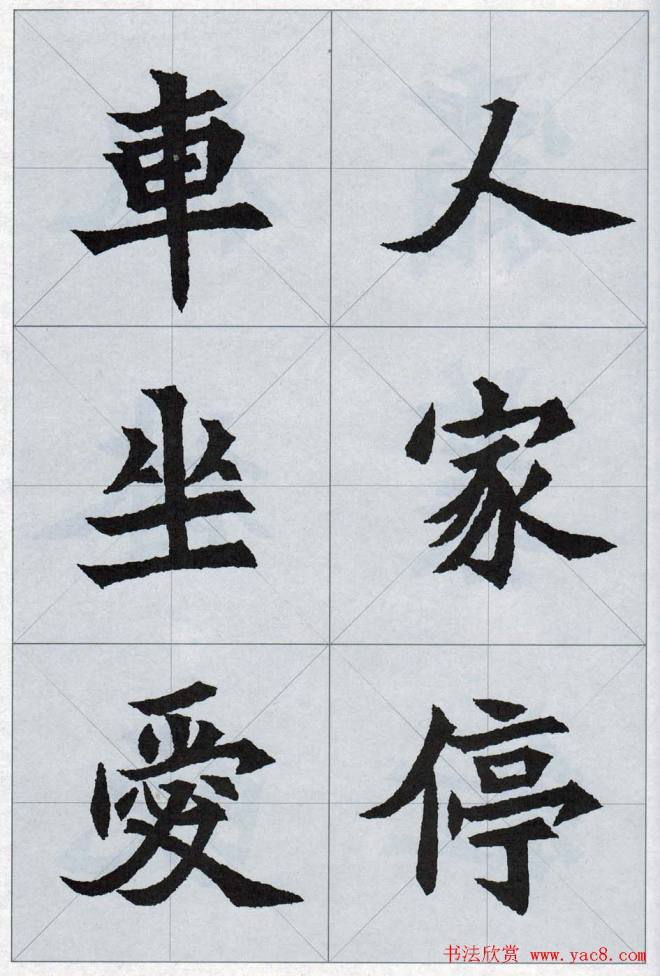 人家停
車坐愛
书法欣赏 www.yac8.com